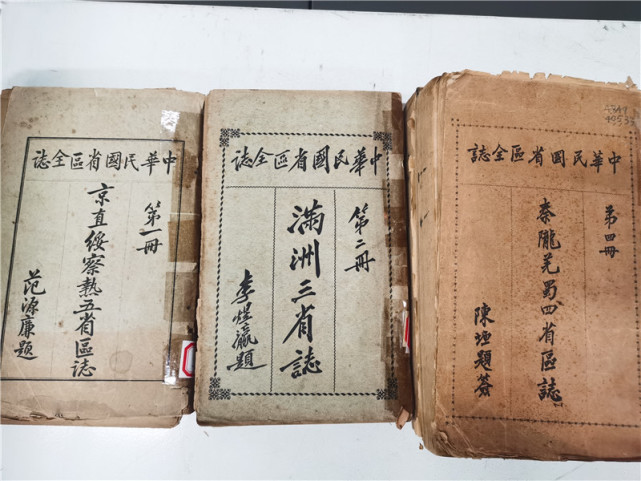 中華民國省區全誌
第一冊
京直綏察熱五省區誌
范源廉題
中華民國省區全誌
第二冊
滿洲三省誌
李煜瀛題
中華民國省區全誌
第四冊
秦隴羌蜀四省區誌
陳垣題簽